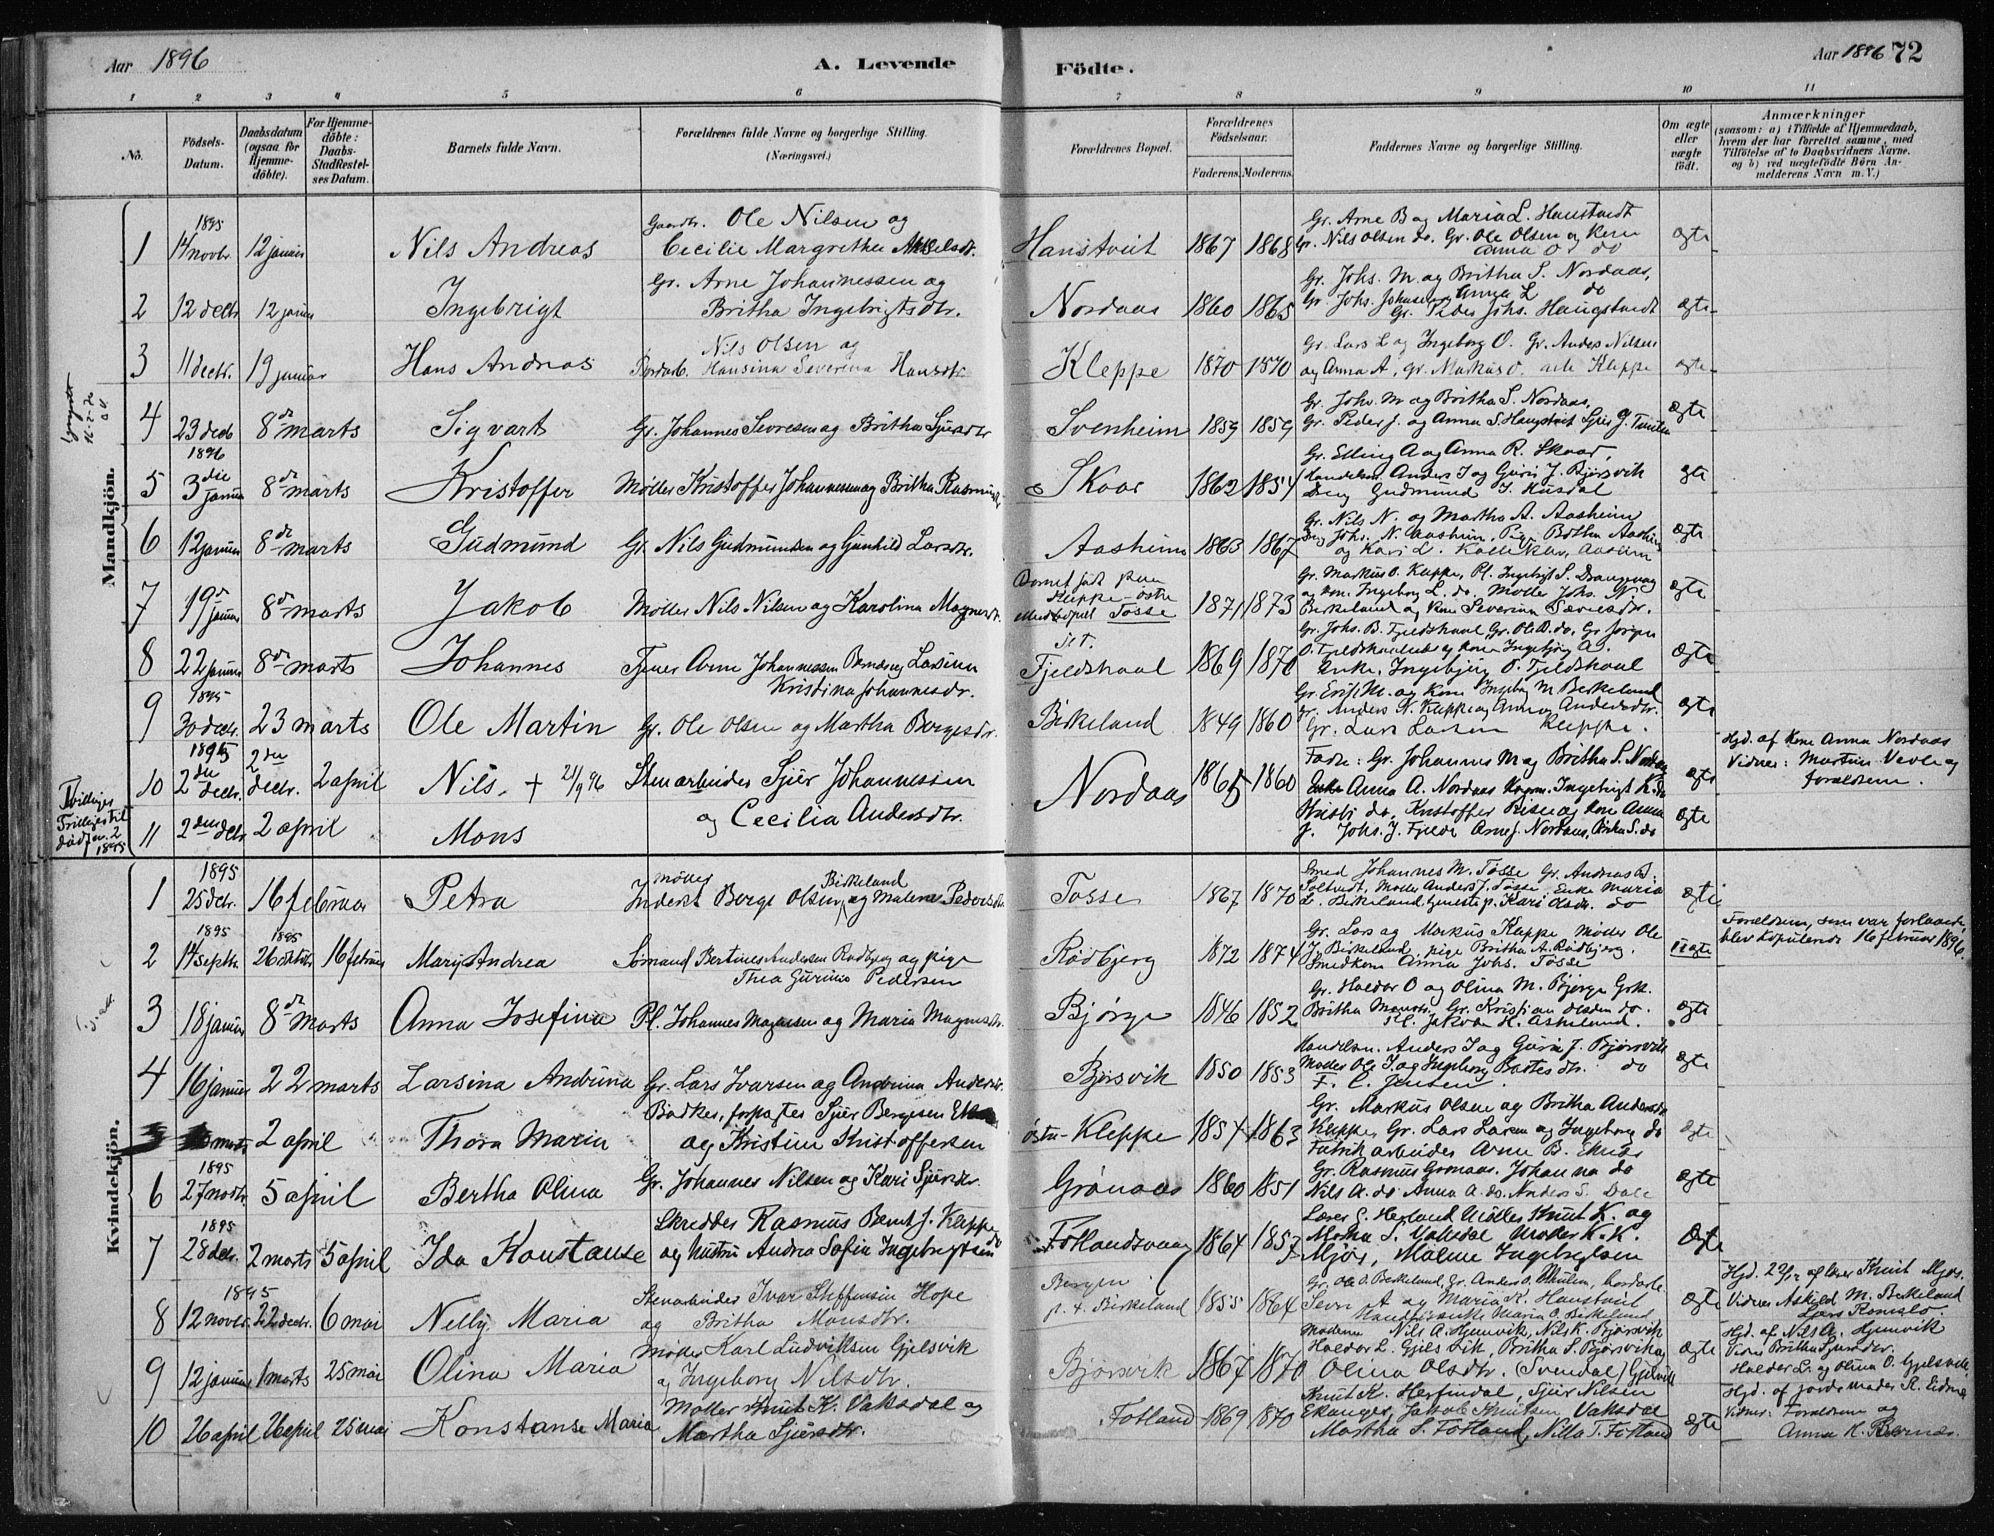 Aar 1896
A. Levende
Födte.
Aar 1896 72
1 2 3 4 5 6 7 8 9 10 11
No.
Födsels-Datum.
Daabsdatum (ogsaa for Hjemme-döbte).
For Hjemme-döbte: Daabs-Stadfæstel-ses Datum.
Barnets fulde Navn.
Forældrenes fulde Navne og borgerlige Stilling. (Næringsvei.)
Forældrenes Bopæl.
Forældrenes Födselsaar.
Faderens. Moderens.
Faddernes Navne og borgerlige Stilling.
Om ægte eller uægte födt.
Anmærkninger
(saasom: a) i Tilfælde af Hjemmedaab,
hvem der har forrettet samme, med
Tilföielse af to Daabsvidners Navne.
og b) ved uægtefödte Börn An-
melderens Navn m. V.)
Mandkjön.
1 1895 14 novbr. 12 januar Nils Andreas Gaardbr. Ole Nilsen og
Cecilie Margrethe Akselsdtr. Hanstveit 1867 1868 Gr. Arne B og Maria L. Hanstvedt
Gr. Nils Olsen do. Gr. Ole Olsen og Kone
Anna O do ægte
2 12 decbr 12 januar Ingebrigt Gr. Arne Johannessen og
Britha Ingebrigtsdtr. Nordaas 1860 1865 Gr. Johs. M. og Britha S. Nordaas,
Gr. Johs. Johnsen og Anna L do
Gr. Peder Johs. Haugstvedt ægte
3 11 decbr. 19 januar Hans Andreas Nils Olsen og
Hansina Severina Hansdtr Kleppe 1870 1870 Gr. Lars L og Ingeborg O. Gr. Anders Nilsen
og Anna A, gr. Markus O, alle Kleppe ægte
4 23 decb 8de marts Sigvart Gr. Johannes Sivresen og Britha Sjursdtr Svenheim 1859 1859 Gr. Johs. M og Britha S. Nordaas,
Gr. Peder J. og Anna S. Haugstvit ægte
5 1896 3die januar 8de marts Kristoffer Møller Kristoffer Johannessen og Britha Skaar 1862 1854 Gr. Elling A og Anna R. Skaar,
Handelsm. Anders I og Guri J. Bjørsvik
Gudmund J. Husdal ægte
6 12 januar 8de marts Gudmund Gr. Nils Gudmundsen og Gunhild Larsdtr. Aasheim 1863 1867 Gr. Nils N. og Martha A. Aasheim
Johs. N. Aasheim, Pige Britha Aasheim
og Kari L. ægte
7 19de januar 8de marts Jakob Møller Nils Nilsen og Karolina Magnesdtr. Barnet født paa
Kleppe-østre
Tosse 1871 1873 Gr. Markus O. Kleppe, Pl. Ingebrigt S.
og kone Ingeborg L. do. Møller Johs. N.
Birkeland og Kone Severina ægte
8 22 januar 8de marts Johannes Tjener Arne Johannessen og Larsina
Kristina Johannesdtr. Fjeldskaal 1869 1870 Gr. Johs. B. Fjeldskaal, Gr. Ole B. do, Gr Jørgen
O. Fjeldskaal og kone Ingebjørg A.
Enke Ingebjørg O. Fjeldskaal ægte
9 1895 30 decbr. 23 marts Ole Martin Gr. Ole Olsen og Martha Bergesdtr. Birkeland 1849 1860 Gr. Erik M. og Kone Ingeborg M Birkeland
gr. Anders N. Kleppe og Anna Andersdtr.
Gr. Lars Larsen Kleppe. ægte
10 1895 2den decbr. 2den decbr. 2 april Nils. + 21/9 96 Stenarbeider Sjur Johannessen
og Cecilia Andersdtr. Nordaas 1865 1860 Fadre: Gr. Johannes M og Britha S. Nordaas
Enke Anna A. Nordaas Ingebrigt K. do
do, Kristoffer Risen og kone Anna
J. Johs. J. Fjelde Arne J. Nordaas, Britha S. do ægte
Hjd. af Kone Anna Nordaas
Vidner: Martin Vevle og
forældrene.
11 2den decbr 2 april Mons ægte
Tvillinger
Kvindekjön.
1 1895 25 decbr. 16 februar Petra Møller
Inderst Berge Olsen Birkeland og Malene Pedersdtr Tosse 1867 1870 Smed Johannes M. Tosse Gr. Andreas B.
Møller Anders J. Tosse, Enke Maria
L. Birkeland, tjenestep. Kari Olsdtr. do ægte
2 1895 14 septbr. 1895 26 oktobr 16 februar Mary Andrea Sømand Bertines Andersen Rødbjerg og pige
Thea Gurina Pedersen Rødbjerg 1872 1874 Gr. Lars og Markus Kleppe Møller Ole
J. Birkeland, pige Britha A. Rødbjerg,
Smedkone Anna Johs. Tosse uægte
Forældrene, som var forlovede,
blev kopulerede 16 februar 1896.
3 18 januar 8de marts Anna Josefina Pl. Johannes Magnesen og Maria Magnesdtr. Bjørge 1846 1852 Gr. Haldor O og Olina M. Bjørge Grk.
Britha Monsdtr, Gr. Kristian Olsen do.
Jakob H. Askeland. ægte
4 16 januar 22 marts Larsina Andrina Gr. Lars Ivarsen og Andrina Andersdtr. Bjørsvik 1850 1853 Handelsm. Anders I og Gurina J. Bjørsvik
Møller Ole I. og Ingeborg Bortes dtr. do
F. C. Jensen. ægte
5 marts 2 april Thora Maria Bødker, forpagter Sjur Bergesen
og Kristine Kristoffersen østre-Kleppe 1857 1863 Gr. Markus Olsen og Britha Andersdtr
Kleppe, Gr. Lars Larsen og Ingeborg do
Fabrikarbeider Arne B. Eknes ægte
6 1895 27 novbr. 5 april Bertha Olina Gr. Johannes Nilsen og Kari Sjursdtr. Grønaas 1860 1851 Gr. Rasmus Grønaas. Johanna do
Nils A. do Anna A. do. Anders S. Dale ægte
7 1895 28 decbr. 2 marts 5 april Ida Konstanse Skredder Rasmus Bernt J. Kleppe
og hustru Andrea Sofia Ingebrigtsen do Fotlandsvaag 1864 1857 Lærer S. Herland Møller Knut K. og
Martha S. Vaksdal Møller K. K.
Mjøs, Malene Ingebrigtsen ægte
8 1895 12 novbr. 22 decbr. 6 mai Nelly Maria Stenarbeider Ivar Steffensen Hope
og Britha Monsdtr. Bergen
p. t. Birkeland 1855 1864 Gr. Ole O. Birkeland, Gr. Anders O. Thulen,
Sevr. A og Maria K. Hanstveit
Maria O. Birkeland ægte
Hjd. 22/12 af lærer Knut Mjøs.
Vidner Askild M. Birkeland
Lars Romslo.
9 12 januar 1 marts 25 mai Olina Maria Møller Karl Ludviksen Gjelsvik
og Ingeborg Nilsdtr. Bjørsvik 1867 1870 Nils A. Hjemvik, Nils K. Bjørsvik
Haldor L. Gjelsvik, Britha S. Bjørsvik og
Olina Olsdtr. (Svendal) Gjelsvik ægte
Hjd. af Nils A. Hjemvik
Vidner Britha Sjursdtr.
Haldor L. og Olina O. Gjelsvik.
10 26 april 26 april 25 mai Konstanse Maria Møller Knut K. Vaksdal og
Martha Sjursdtr. Fotland 1869 1870 Knut K. Herfindal, Sjur Nilsen
Ekanger, Jakob Knutsen Vaksdal
Martha S. Fotland, Nilla T. Fotland ægte
Hjd. af jordemoder R. Eidnes
Vidner: Forældrene og
Anna K. Bernes.